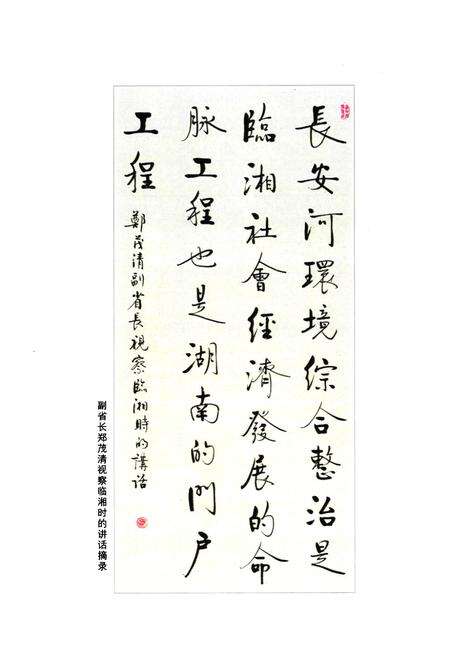 長安河環境綜合整治是
臨湘社會經濟發展的命
脉工程也是湖南的門户
工程
鄭茂清副省長視察臨湘時的講話
副省长郑茂清视察临湘时的讲话摘录